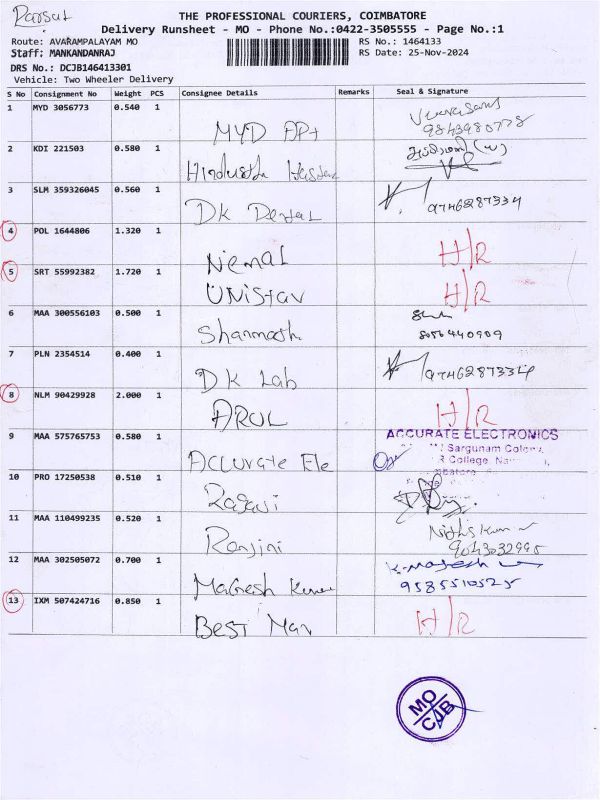 Parsal
THE PROFESSIONAL COURIERS, COIMBATORE
Delivery Runsheet - MO - Phone No.:0422-3505555 - Page No.:1
Route: AVARAMPALAYAM MO RS No.: 1464133
Staff: MANKANDANRAJ RS Date: 25-Nov-2024
DRS No.: DCJB146413301
Vehicle: Two Wheeler Delivery
S No Consignment No Weight PCS Consignee Details Remarks Seal & Signature
1 MYD 3056773 0.540 1 MYD APt 9843980778
2 KDI 221503 0.580 1 Hindustha
3 SLM 359326045 0.560 1 DK Dental 9746287334
4 POL 1644806 1.320 1 Nemal H/R
5 SRT 55992382 1.720 1 UNistav H/R
6 MAA 300556103 0.500 1 Shanmaath 8056440909
7 PLN 2354514 0.400 1 DK Lab 9746287334
8 NLM 90429928 2.000 1 AROL H/R
9 MAA 575765753 0.580 1 Accurate Ele ACCURATE ELECTRONICS
Sargunam Colony,
R College,
10 PRO 17250538 0.510 1
11 MAA 110499235 0.520 1 Ranjini Nithis Kumar
9043032995
12 MAA 302505072 0.700 1 Magesh Kumar K. Magesh
9585510525
13 IXM 507424716 0.850 1 BEST Mav H/R
MO
CAB